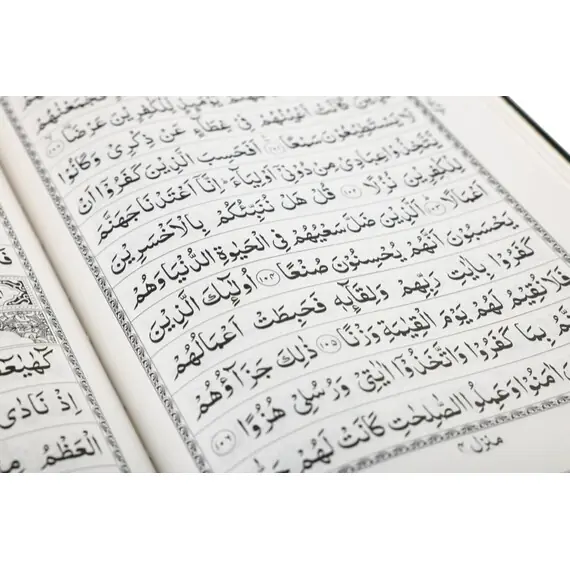 يَوْمَئِذٍ لِّلْكٰفِرِيْنَ عَرْضًا ۝۱۰۰
كَانَتْ اَعْيُنُهُمْ فِيْ غِطَآءٍ عَنْ ذِكْرِيْ وَكَانُوْا
لَا يَسْتَطِيْعُوْنَ سَمْعًا ۝۱۰۱ اَفَحَسِبَ الَّذِيْنَ كَفَرُوْٓا اَنْ
يَّتَّخِذُوْا عِبَادِيْ مِنْ دُوْنِيْٓ اَوْلِيَآءَ ؕ اِنَّآ اَعْتَدْنَا جَهَنَّمَ
لِلْكٰفِرِيْنَ نُزُلًا ۝۱۰۲ قُلْ هَلْ نُنَبِّئُكُمْ بِالْاَخْسَرِيْنَ
اَعْمَالًا ۝۱۰۳ اَلَّذِيْنَ ضَلَّ سَعْيُهُمْ فِي الْحَيٰوةِ الدُّنْيَا وَهُمْ
يَحْسَبُوْنَ اَنَّهُمْ يُحْسِنُوْنَ صُنْعًا ۝۱۰۴ اُولٰٓئِكَ الَّذِيْنَ
كَفَرُوْا بِاٰيٰتِ رَبِّهِمْ وَلِقَآئِهٖ فَحَبِطَتْ اَعْمَالُهُمْ
فَلَا نُقِيْمُ لَهُمْ يَوْمَ الْقِيٰمَةِ وَزْنًا ۝۱۰۵ ذٰلِكَ جَزَآؤُهُمْ
بِمَا كَفَرُوْا وَاتَّخَذُوْٓا اٰيٰتِيْ وَرُسُلِيْ هُزُوًا ۝۱۰۶
اٰمَنُوْا وَعَمِلُوا الصّٰلِحٰتِ كَانَتْ لَهُمْ
منزل ۴
كٓهٰيٰعٓصٓ
اِذْ نَادٰى
الْعَظْمُ